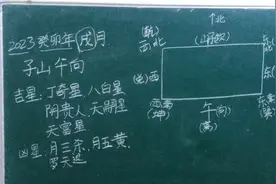 2023癸卯年戌月
子山午向
吉星:丁奇星、八白星
阴贵人、天嗣星
天富星
凶星:月三杀、月五黄、
罗天退
北
(乾)
西北
(山)子(坎)
东
(兑)西
东
西南
(坤)
午(向)
(离)
东南